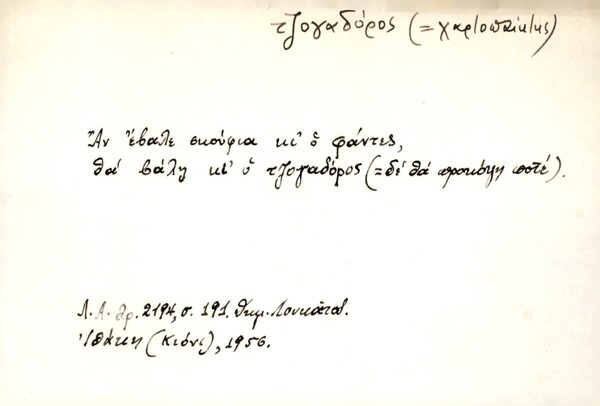 τζογαδόρος (= χαρτοπαίκτης)
Ἂν ἔβαλε σκούφια κι' ὁ φάντες,
θά βάλῃ κι' ὁ τζογαδόρος (= δέ θά προκόψῃ ποτέ).
Λ.Α. ἀρ. 2194, σ. 191. Δημ. Λουκᾶτος.
Ἰθάκη (Κιόνι), 1956.